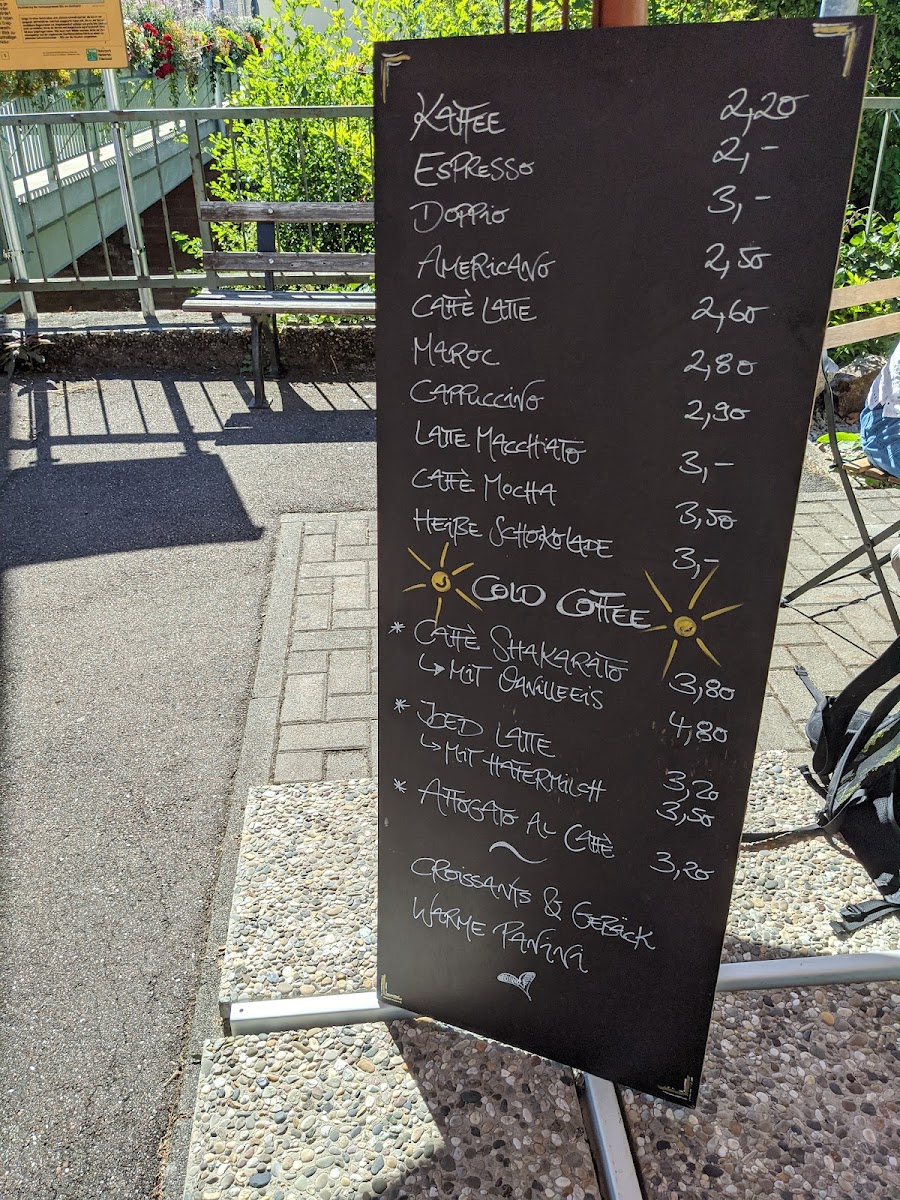 KAFFEE 2,20
ESPRESSO 2,-
DOPPIO 3,-
AMERICANO 2,50
CAFFÈ LATTE 2,60
MAROC 2,80
CAPPUCCINO 2,90
LATTE MACCHIATO 3,-
CAFFÈ MOCHA 3,50
HEIßE SCHOKOLADE 3,-
COLD COFFEE
* CAFFÈ SHAKARATO 3,80
↳ MIT VANILLEEIS 4,80
* ICED LATTE 3,20
↳ MIT HAFERMILCH 3,50
* AFFOGATO AL CAFFÈ 3,20
~
CROISSANTS & GEBÄCK
WARME PANINI